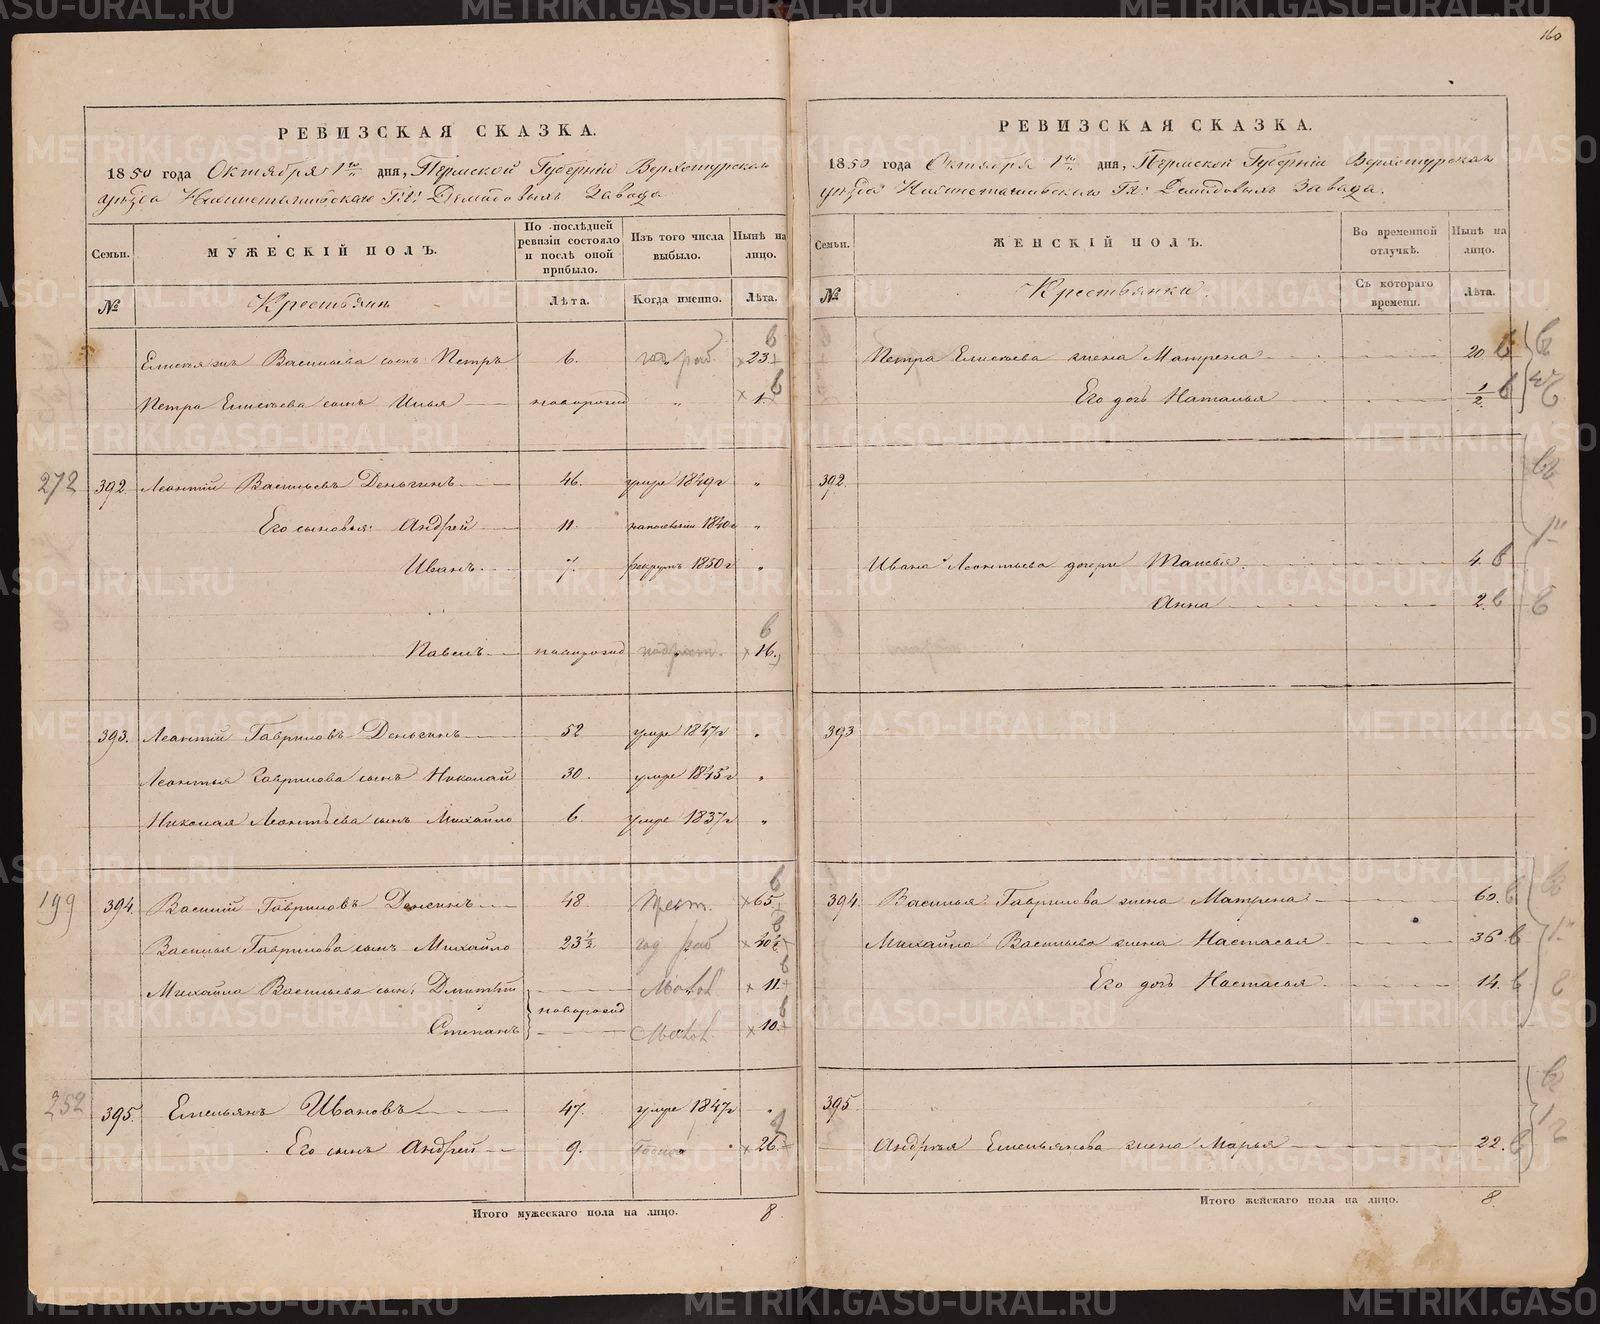 160
РЕВИЗСКАЯ СКАЗКА.
1850 года Октября 1го дня, Пермской Губерніи Верхотурскаго
уѣзда Нижнетагильскаго Гг: Демидовыхъ Завода
Семьи.
МУЖЕСКІЙ ПОЛЪ.
По послѣдней ревизіи состояло и послѣ оной прибыло.
Изъ того числа выбыло.
Нынѣ на лицо.
№
Крестьяне
Лѣта.
Когда именно.
Лѣта.
Елисѣя Васильева сынъ Петръ 6. 23
Петра Елисѣева сынъ Илья новорожд „ 1.
272 392. Леонтій Васильевъ Деньгинъ 46. умре 1849г „
Его сыновья: Андрей 11. 1840г „
Иванъ 7. рекрутъ 1850г „
Павелъ новорожд 16.
393. Леонтій Гавриловъ Деньгинъ 52 умре 1847г „
Леонтья Гаврилова сынъ Николай 30. умре 1845г „
Николая Леонтьева сынъ Михайло 6. умре 1837г „
199 394. Василій Гавриловъ 48 65
Василья Гаврилова сынъ Михайло 23½ 40½
Михайла Васильева сын: Дмитрій 11
новорожд
Степанъ 10
252 395. Емельянъ Ивановъ 47. умре 1847г „
Его сынъ Андрей 9. 26.
Итого мужескаго пола на лицо. 8.
РЕВИЗСКАЯ СКАЗКА.
1850 года Октября 1го дня, Пермской Губерніи Верхотурскаго
уѣзда Нижнетагильскаго Гг: Демидовыхъ Завода.
Семьи.
ЖЕНСКІЙ ПОЛЪ.
Во временной отлучкѣ.
Нынѣ на лицо.
№
Крестьянки.
Съ котораго времени.
Лѣта.
Петра Елисѣева жена Матрена 20
Его дочь Наталья ½
392.
Ивана Леонтьева дочери Таисья 4.
Анна 2.
393
394. Василья Гаврилова жена Матрена 60.
Михайла Васильева жена Настасья 36
Его дочь Настасья 14.
395.
Андрея Емельянова жена Марья 22.
Итого женскаго пола на лицо. 8.
METRIKI.GASO-URAL.RU